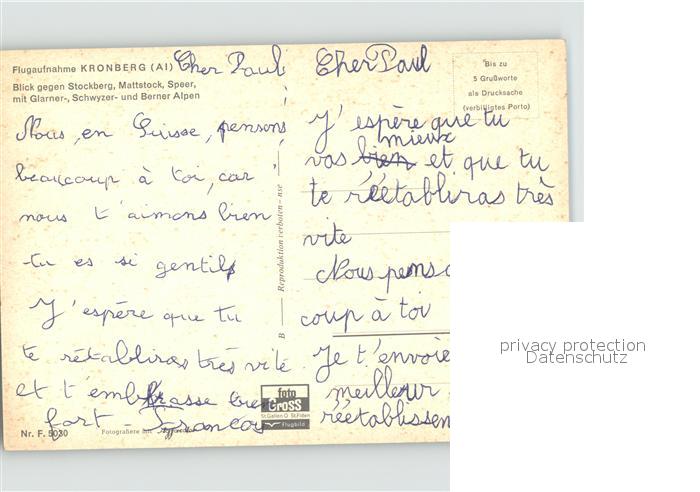 Flugaufnahme KRONBERG (AI)
Blick gegen Stockberg, Mattstock, Speer,
mit Glarner-, Schwyzer- und Berner Alpen
Cher Paul
Nous, en Suisse, pensons
beaucoup à toi, car
nous t'aimons bien
tu es si gentil
J'espère que tu
te rétabliras très vite
et t'embrasse bien
fort - Francoy
Nr. F. 5030
Fotografiere mit
B — Reproduktion verboten - nse
foto
Gross
St.Gallen O St.Fiden
Flugbild
Cher Paul
Bis zu
5 Grußworte
als Drucksache
(verbilligtes Porto)
J'espère que tu
mieux
vas bien et que tu
te réetabliras très
vite
Nous pens
coup à toi
Je t'envoie
meilleur
réetablissem
privacy protection
Datenschutz